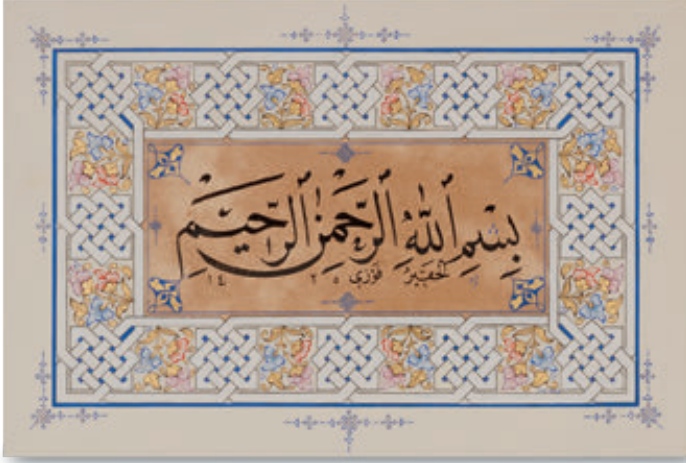 بِسْمِ اللّٰهِ الرَّحْمٰنِ الرَّحِيمِ
الحقير فوزي ١٤٢٥